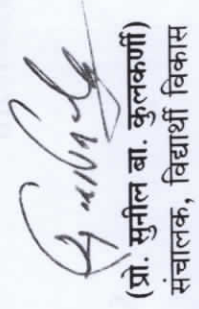 (प्रो. सुनील बा. कुलकर्णी)
संचालक, विद्यार्थी विकास